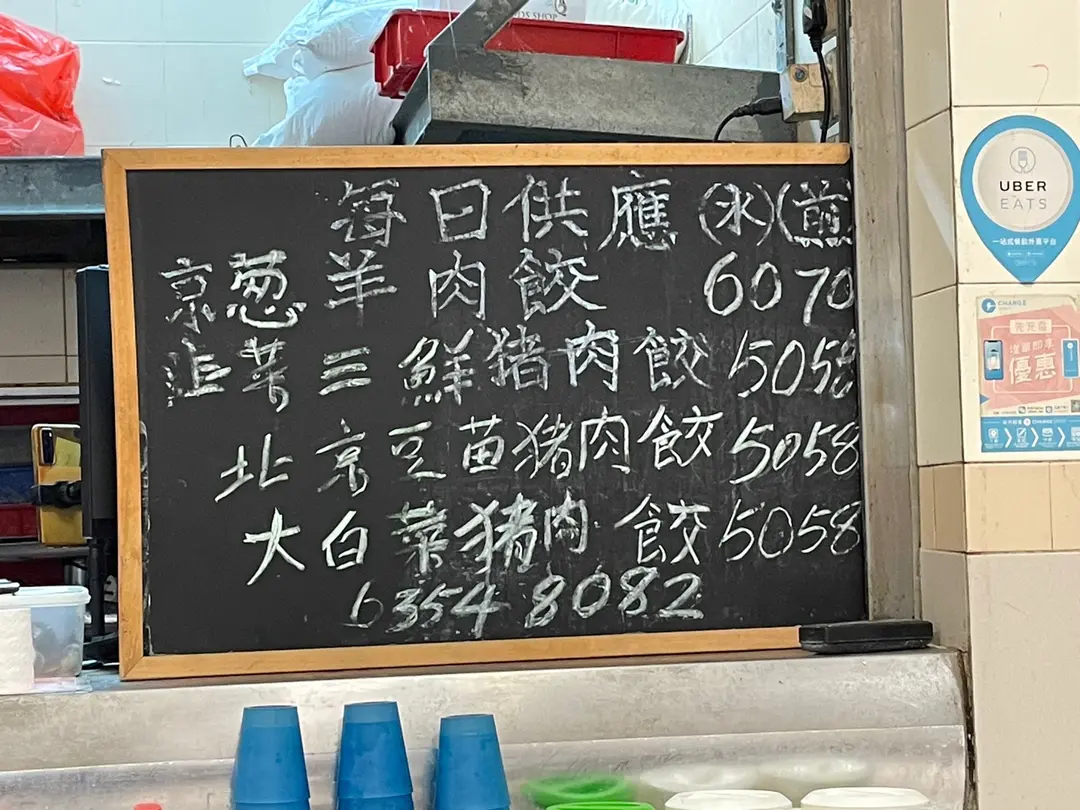 每日供應(水)(煎
京葱羊肉餃 60 70
韭菜三鮮猪肉餃 50 58
北京豆苗猪肉餃 50 58
大白菜猪肉餃 50 58
6354 8082
UBER
EATS
一站式餐飲外賣平台
CHANGE
優惠